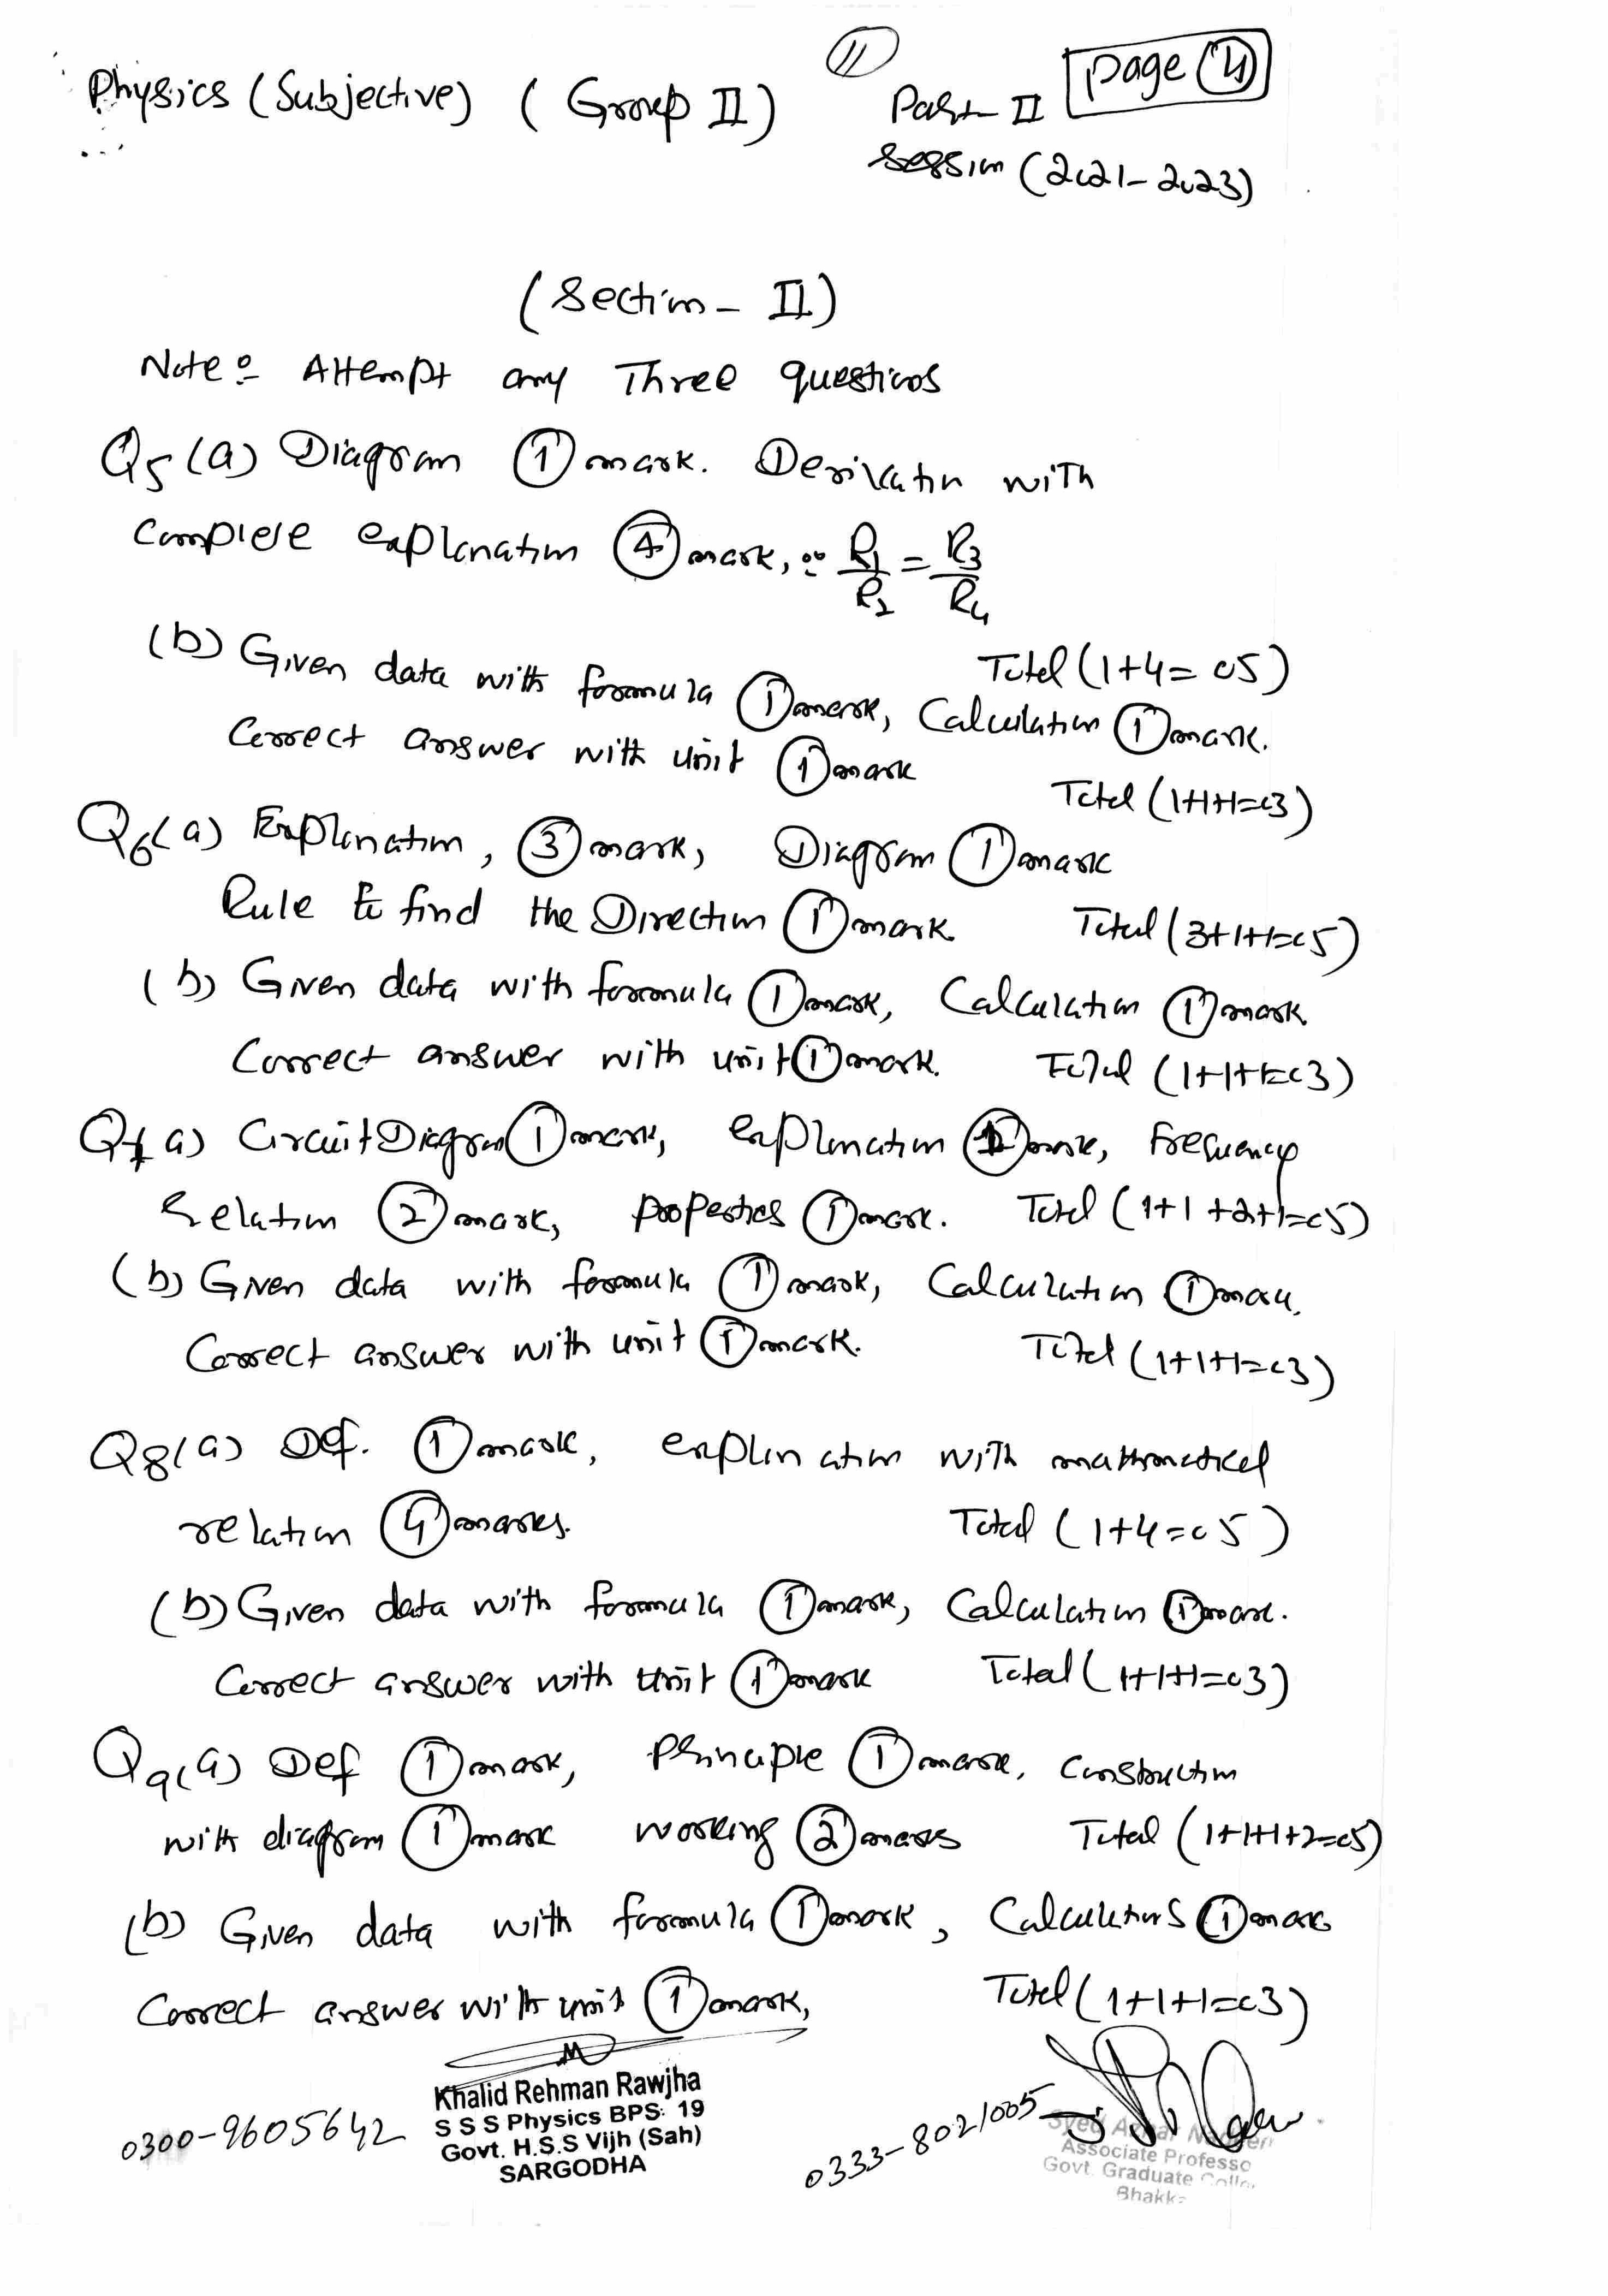 11
Physics (Subjective) (Group II) Part II Page 4
Session (2021-2023)
(Section - II)
Note:- Attempt any Three questions
Q5 (a) Diagram 1 mark. Derivation with
Complete explanation 4 mark, ∵ R1/R2 = R3/R4
Total (1+4=05)
(b) Given data with formula 1 mark, Calculation 1 mark.
Correct answer with unit 1 mark
Total (1+1+1=03)
Q6 (a) Explanation, 3 mark, Diagram 1 mark
Rule to find the Direction 1 mark Total (3+1+1=05)
(b) Given data with formula 1 mark, Calculation 1 mark
Correct answer with unit 1 mark. Total (1+1+1=03)
Q7 a) Circuit Diagram 1 mark, explanation 1 mark, Frequency
relation 2 mark, properties 1 mark. Total (1+1+2+1=05)
(b) Given data with formula 1 mark, Calculation 1 mark.
Correct answer with unit 1 mark. Total (1+1+1=03)
Q8 (a) Def. 1 mark, explination with mathmetical
relation 4 marks. Total (1+4=05)
(b) Given data with formula 1 mark, Calculation 1 mark.
Correct answer with unit 1 mark Total (1+1+1=03)
Q9 (a) Def 1 mark, Principle 1 mark, Construction
with diagram 1 mark working 2 marks Total (1+1+1+2=05)
(b) Given data with formula 1 mark, Calculations 1 mark
Correct answer with unit 1 mark, Total (1+1+1=03)
Khalid Rehman Rawjha
S S S Physics BPS: 19
Govt. H.S.S Vijh (Sah)
SARGODHA
0300-9605642
0333-8021005
Syed
Associate Professo
Govt. Graduate
Bhakk